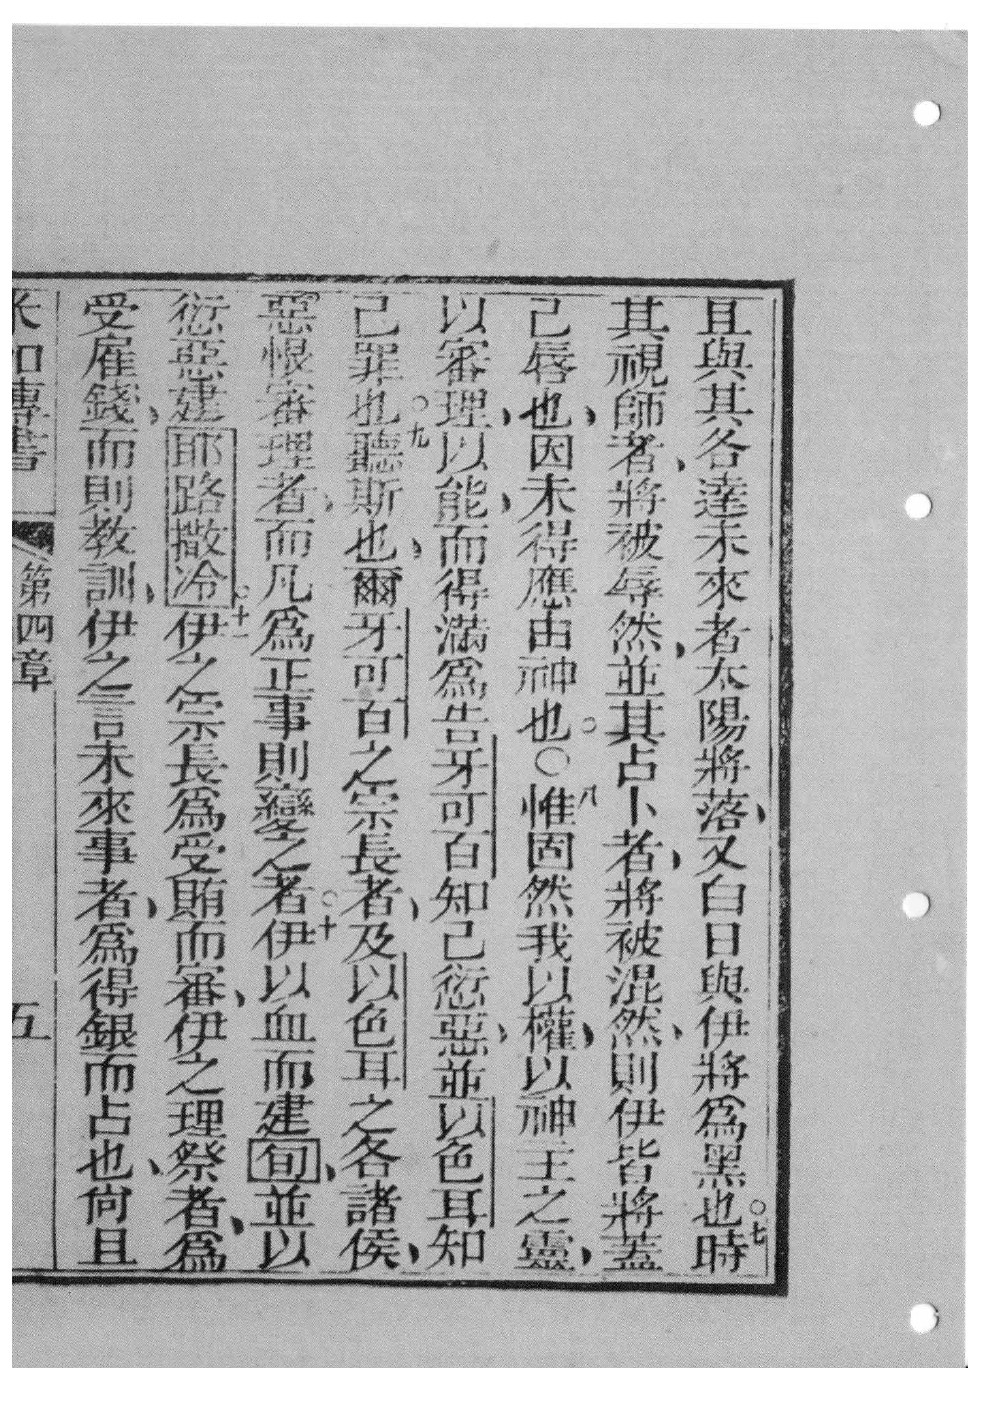 且與其各達未來者太陽將落、又白日與伊將為黑也。七時
其視師者、將被辱然、並其占卜者、將被混然、則伊皆將蓋
己唇也、因未得應由神也。○八惟固然我以權、以神王之靈、
以審理、以能、而得滿為告牙可百知己愆惡、並以色耳知
己罪也。九聽斯也、爾牙可百之宗長者、及以色耳之各諸侯、
惡恨審理者、而凡為正事則變之者。十伊以血而建旬、並以
愆惡建耶路撒冷。十一伊之宗長為受賄而審、伊之理祭者、為
受雇錢、而則教訓、伊之言未來事者、為得銀而占也、尚且
米加傳書 第四章 五